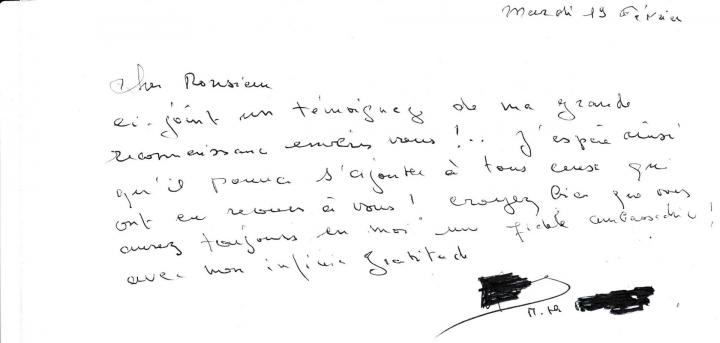 Mardi 19 Février
Cher Monsieur
ci-joint un témoignage de ma grande
reconnaissance envers vous !.. J'espère ainsi
qu'il pourra s'ajouter à tous ceux qui
ont eu recours à vous ! croyez bien que vous
aurez toujours en moi un fidèle ambassadeur !
avec mon infinie gratitude